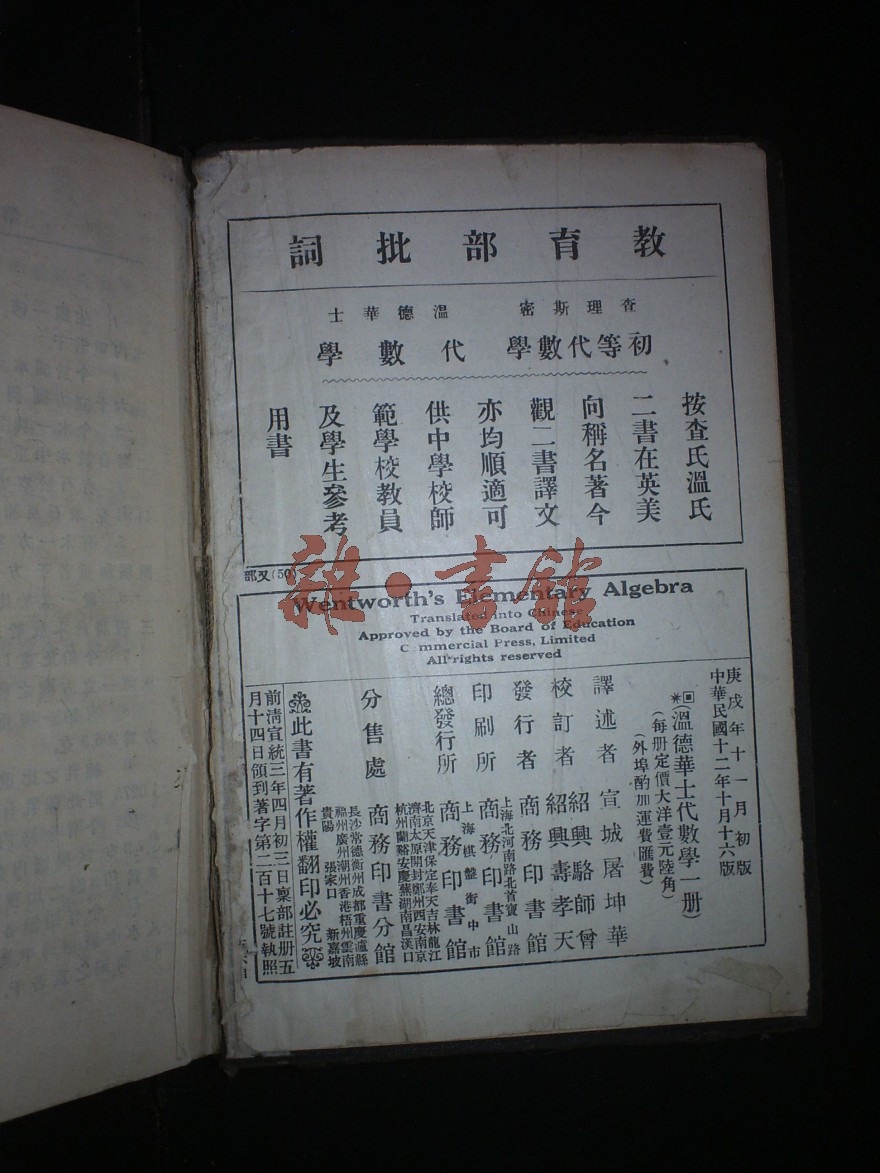 教育部批詞
查理斯密
初等代數學
溫德華士
代數學
按查氏溫氏
二書在英美
向稱名著今
觀二書譯文
亦均順適可
供中學校師
範學校教員
及學生參考
用書
雜·書館
部又(50)
Wentworth's Elementary Algebra
Translated into Chinese
Approved by the Board of Education
Commercial Press, Limited
All rights reserved
庚戌年十一月初版
中華民國十二年十月十六版
(溫德華士代數學一册)
(每册定價大洋壹元陸角)
(外埠酌加運費匯費)
譯述者 宣城屠坤華
校訂者 紹興駱師曾
紹興壽孝天
發行者 商務印書館
印刷所 上海北河南路北首寶山路
商務印書館
總發行所 上海棋盤街中市
商務印書館
分售處 北京天津保定奉天吉林龍江
濟南太原開封鄭州西安南京
杭州蘭谿安慶蕪湖南昌漢口
商務印書分館
長沙常德衡州成都重慶瀘縣
福州廣州潮州香港梧州雲南
貴陽 張家口 新嘉坡
此書有著作權翻印必究
前清宣統三年四月初三日稟部註册五
月十四日領到著字第二百十七號執照